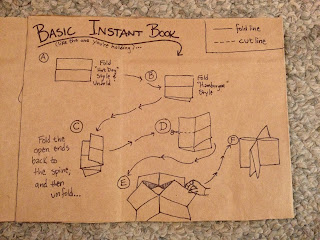 BASIC INSTANT BOOK
(like the one you're holding)...
fold line
cut line
A
Fold
"Hot Dog"
Style &
Unfold
B
Fold
"Hamburger"
Style
C
Fold the
open ends
back to
the spine,
and then
unfold...
D
E
F